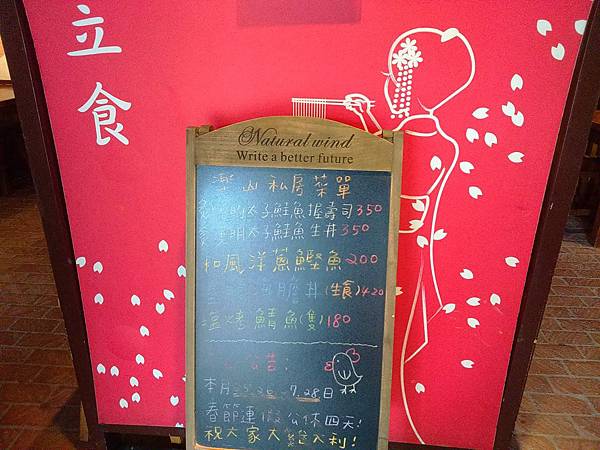 立食
Natural wind
Write a better future
樂山私房菜單
明太子鮭魚握壽司350
明太子鮭魚生丼350
和風洋蔥鰹魚200
膽丼(生食)420
塩烤鯖魚(隻)180
公告:
本月25.26.27.28日
春節連假公休四天!
祝大家大發利!